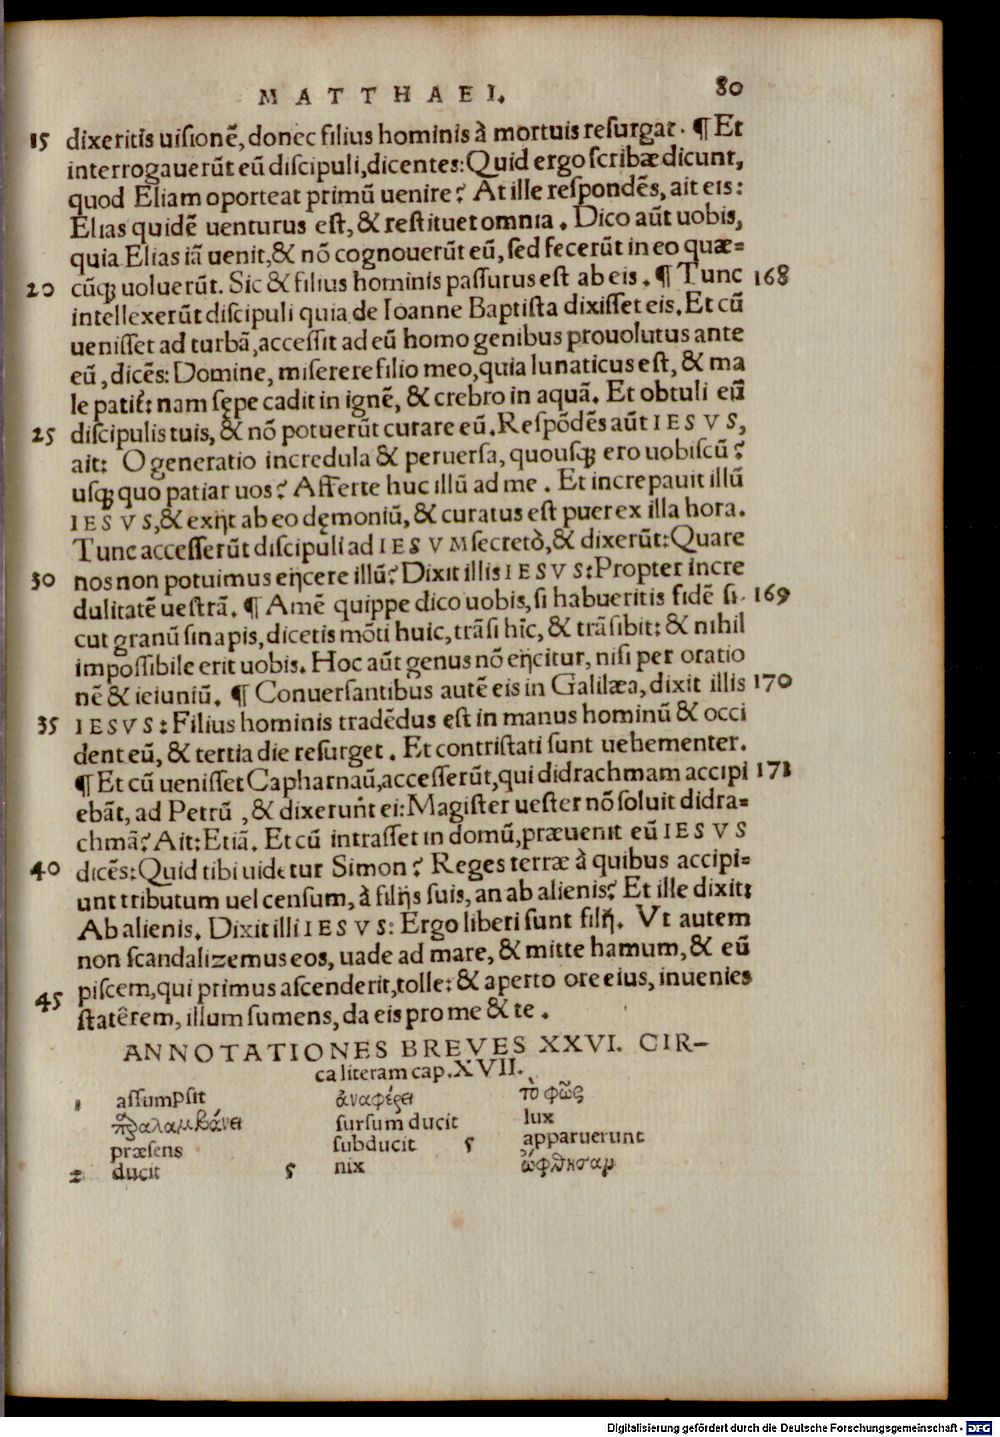 MATTHAEI. 80
15 dixeritis uisionē, donec filius hominis à mortuis resurgat. ¶ Et
interrogauerūt eū discipuli, dicentes: Quid ergo scribæ dicunt,
quod Eliam oporteat primū uenire? At ille respondēs, ait eis:
Elias quidē uenturus est, & restituet omnia. Dico aūt uobis,
quia Elias iā uenit, & nō cognouerūt eū, sed fecerūt in eo quæ=
20 cūq; uoluerūt. Sic & filius hominis passurus est ab eis. ¶ Tunc 168
intellexerūt discipuli quia de Ioanne Baptista dixisset eis. Et cū
uenisset ad turbā, accessit ad eū homo genibus prouolutus ante
eū, dicēs: Domine, miserere filio meo, quia lunaticus est, & ma
le patit᷑: nam sępe cadit in ignē, & crebro in aquā. Et obtuli eū
25 discipulis tuis, & nō potuerūt curare eū. Respōdēs aūt IESVS,
ait: O generatio incredula & peruersa, quousq; ero uobiscū?
usq; quo patiar uos? Afferte huc illū ad me. Et increpauit illū
IESVS, & exijt ab eo dęmoniū, & curatus est puer ex illa hora.
Tunc accesserūt discipuli ad IESVM secretò, & dixerūt: Quare
30 nos non potuimus eijcere illū? Dixit illis IESVS: Propter incre
dulitatē uestrā. ¶ Amē quippe dico uobis, si habueritis fidē si 169
cut granū sinapis, dicetis mōti huic, trāsi hīc, & trāsibit: & nihil
impossibile erit uobis. Hoc aūt genus nō eijcitur, nisi per oratio
nē & ieiuniū. ¶ Conuersantibus autē eis in Galilæa, dixit illis 170
35 IESVS: Filius hominis tradēdus est in manus hominū & occi
dent eū, & tertia die resurget. Et contristati sunt uehementer.
¶ Et cū uenisset Capharnaū, accesserūt, qui didrachmam accipi 171
ebāt, ad Petrū, & dixerunt ei: Magister uester nō soluit didra=
chmā? Ait: Etiā. Et cū intrasset in domū, præuenit eū IESVS
40 dicēs: Quid tibi uidetur Simon? Reges terræ à quibus accipi=
unt tributum uel censum, à filijs suis, an ab alienis? Et ille dixit:
Ab alienis. Dixit illi IESVS: Ergo liberi sunt filij. Vt autem
non scandalizemus eos, uade ad mare, & mitte hamum, & eū
piscem, qui primus ascenderit, tolle: & aperto ore eius, inuenies
45 statêrem, illum sumens, da eis pro me & te.
ANNOTATIONES BREVES XXVI. CIR-
ca literam cap. XVII.
1 assumpsit
παραλαμβάνει
præsens
2 ducit
ἀναφέρει
sursum ducit
subducit
5 nix
τὸ φῶς
lux
5 apparuerunt
ὤφθησαν
Digitalisierung gefördert durch die Deutsche Forschungsgemeinschaft - DFG